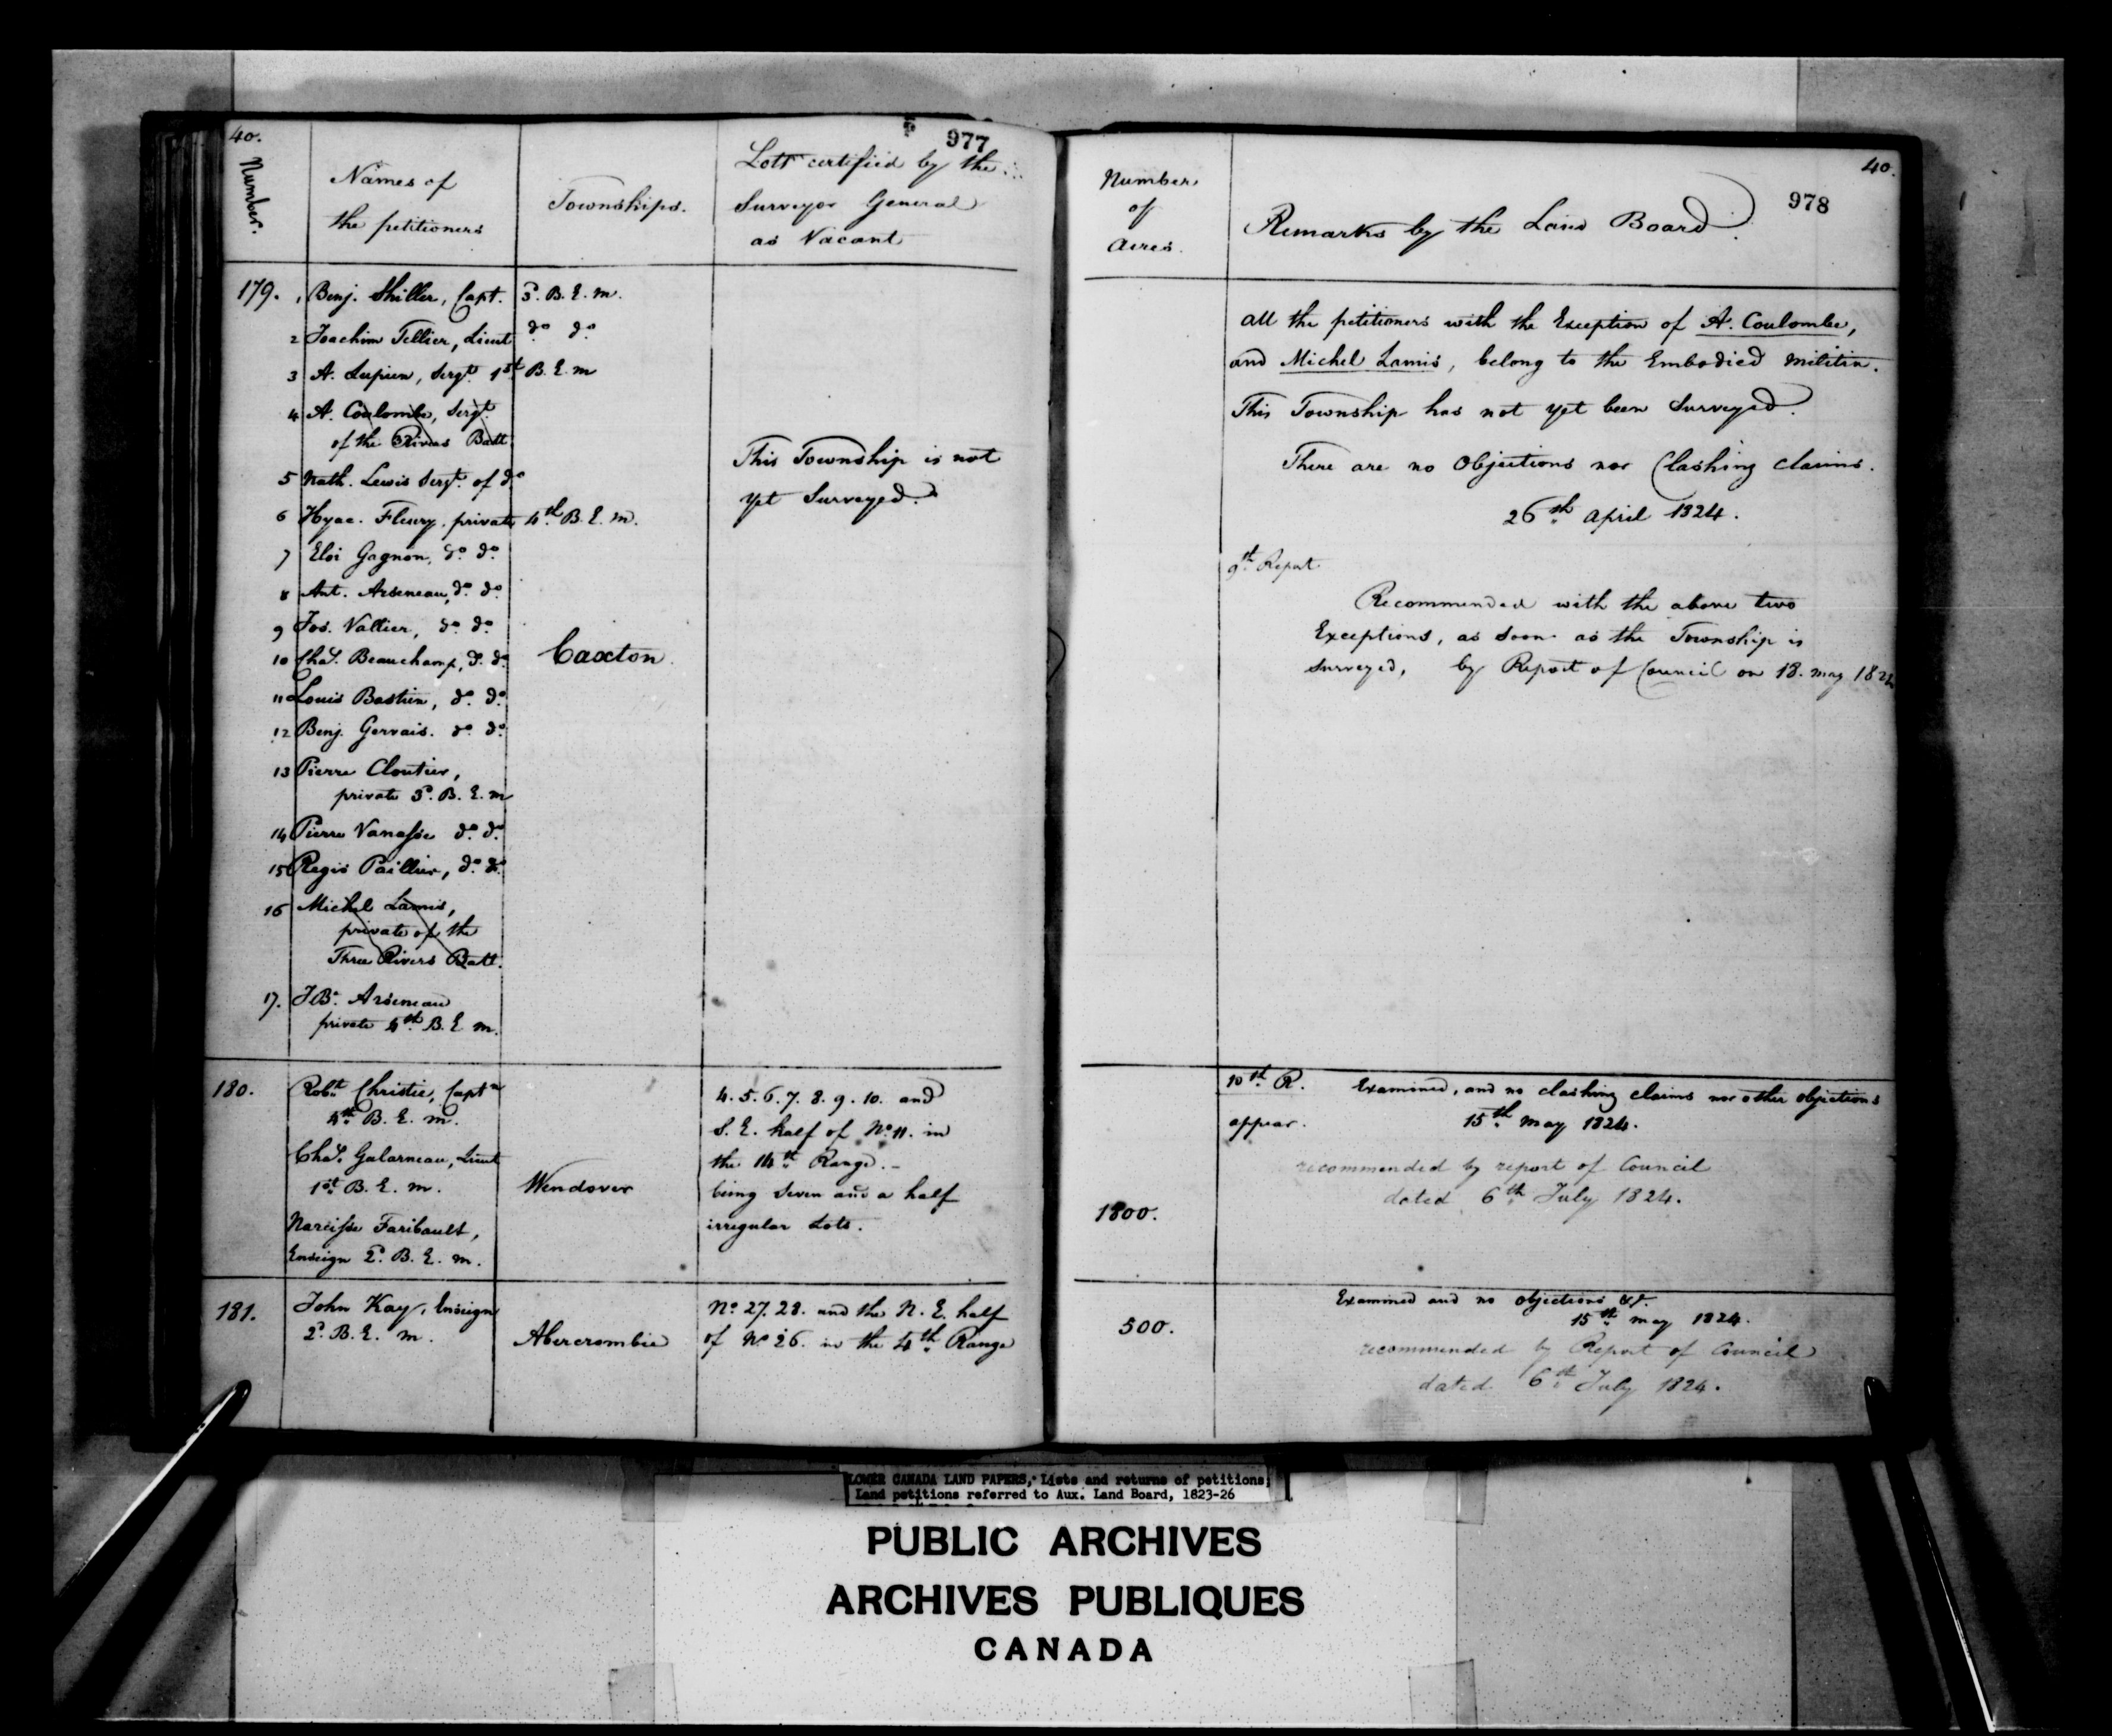 40.
977
Number.
Names of
the petitioners
Townships.
Lots certified by the
Surveyor General
as Vacant
179. 1 Benj. Shiller, Capt. 3d. B. E. m.
2 Joachim Tellier, Lieut do. do.
3 A. Lupien, Sergt. 1st B. E. m
4 A. Coulombe, Sergt.
of the 3 Rivers Batt.
5 Nath. Lewis Sergt. of do
6 Hyac. Fleury, private 4th B. E. m.
7 Eloi Gagnon, do. do.
8 Ant. Arseneau, do. do.
9 Jos. Vallier, do. do.
10 Chas. Beauchamp, do. do.
11 Louis Bastien, do. do.
12 Benj. Gervais. do. do.
13 Pierre Cloutier,
private 3d. B. E. m
14 Pierre Vanasse do. do.
15 Regis Paillier, do. do.
16 Michel Lamis,
private of the
Three Rivers Batt.
17. J Bte. Arseneau
private 4th. B. E. m.
Caxton.
This Township is not
yet Surveyed.
180. Robt. Christie, Captn
4th B. E. m.
Chas. Galarneau, Lieut
1st B. E. m.
Narcisse Faribault,
Ensign 2d. B. E. m.
Wendover
4. 5. 6. 7. 8. 9. 10. and
S. E. half of No. 11. in
the 14th Range. -
being Seven and a half
irregular Lots.
181. John Kay, Ensign
2d. B. E. m.
Abercrombie
No. 27. 28. and the N. E. half
of No. 26. in the 4th. Range
40.
978
Number
of
Acres.
Remarks by the Land Board.
All the petitioners with the Exception of A. Coulombe,
and Michel Lamis, belong to the Embodied Militia.
This Township has not yet been Surveyed.
There are no Objections nor Clashing claims.
26th April 1824.
9th Report.
Recommended with the above two
Exceptions, as soon as the Township is
surveyed, by Report of Council on 18. may 1824
1800.
10th R. Examined, and no clashing claims nor other objections
appear. 15th may 1824.
recommended by report of Council
dated 6th July 1824.
500.
Examined and no objections &c.
15th may 1824.
recommended by Report of Council
dated 6th July 1824.
LOWER CANADA LAND PAPERS, Lists and returns of petitions;
Land petitions referred to Aux. Land Board, 1823-26
PUBLIC ARCHIVES
ARCHIVES PUBLIQUES
CANADA